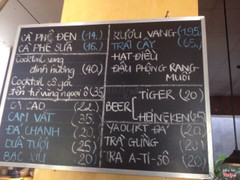 CÀ PHÊ ĐEN (14.)
CÀ PHÊ SỮA (16.)
Cocktail vang
đinh hương (40)
Cocktail cô gái
(35)
CA CAO (22.)
CAM VẮT 35
ĐÁ CHANH (20)
DỪA TƯƠI (25)
BẠC XỈU (20)
RƯỢU VANG (195
TRÁI CÂY (65
HẠT ĐIỀU
ĐẬU PHỘNG RANG
MUỐI
BEER
TIGER (20)
HEINEKEN
YAOURT ĐÁ (20)
TRÀ GỪNG (20)
TRÀ A-TI-SÔ (20)